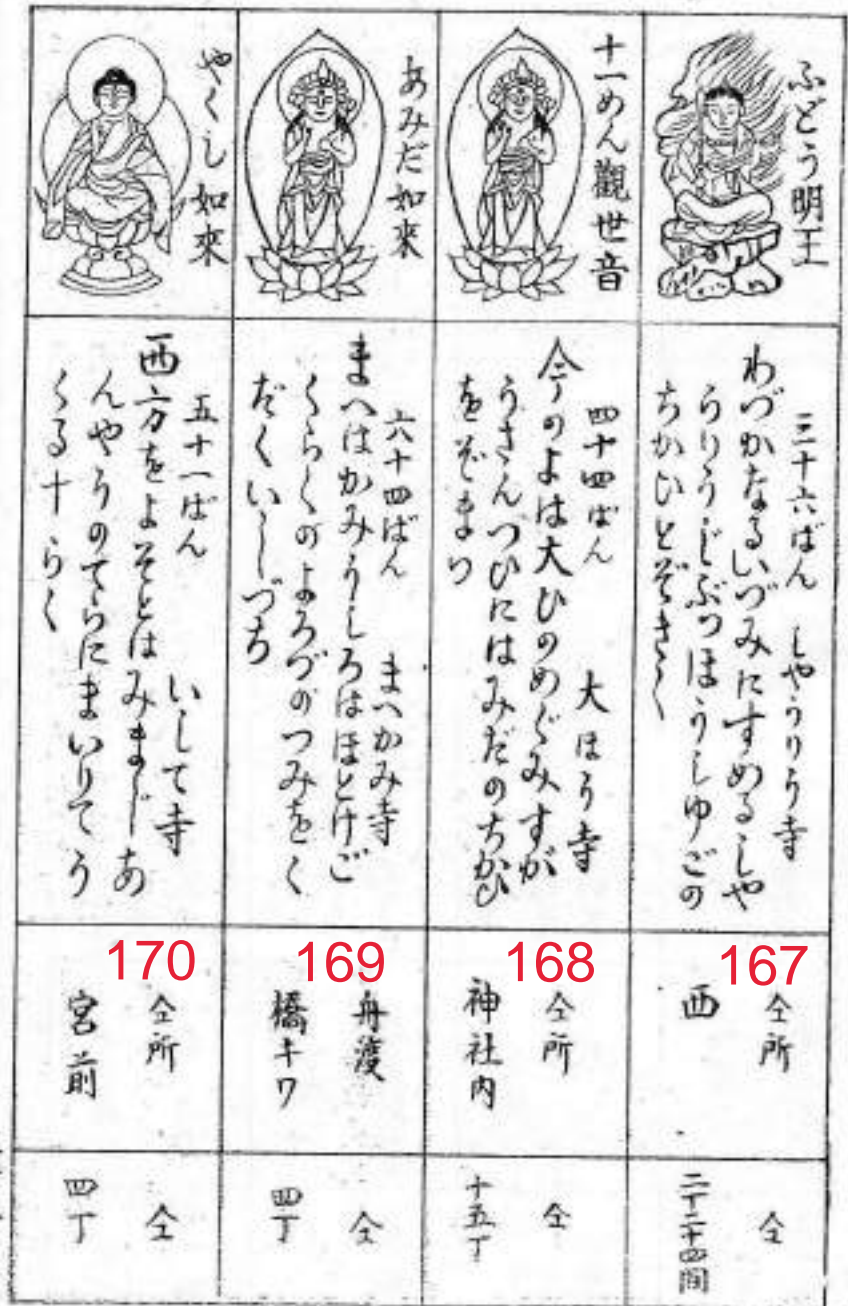 ふどう明王
三十六ばん しやうりう寺
わづかなるいづみにすめるしや
うりうじぶつほうしゆごの
ちかひとぞきく
167
仝所
西
仝
二丁二十四間
十一めん觀世音
四十四ばん 大ほう寺
今のよは大ひのめぐみすが
うさんつひにはみだのちかひ
をぞまつ
168
仝所
神社内
仝
十五丁
あみだ如來
六十四ばん まへかみ寺
まへはかみうしろはほとけご
くらくのよろづのつみをく
だくいしづち
169
舟渡
橋キワ
仝
四丁
やくし如來
五十一ばん いして寺
西方をよそとはみまじあ
んやうのてらにまいりてう
くる十らく
170
仝所
宮前
仝
四丁